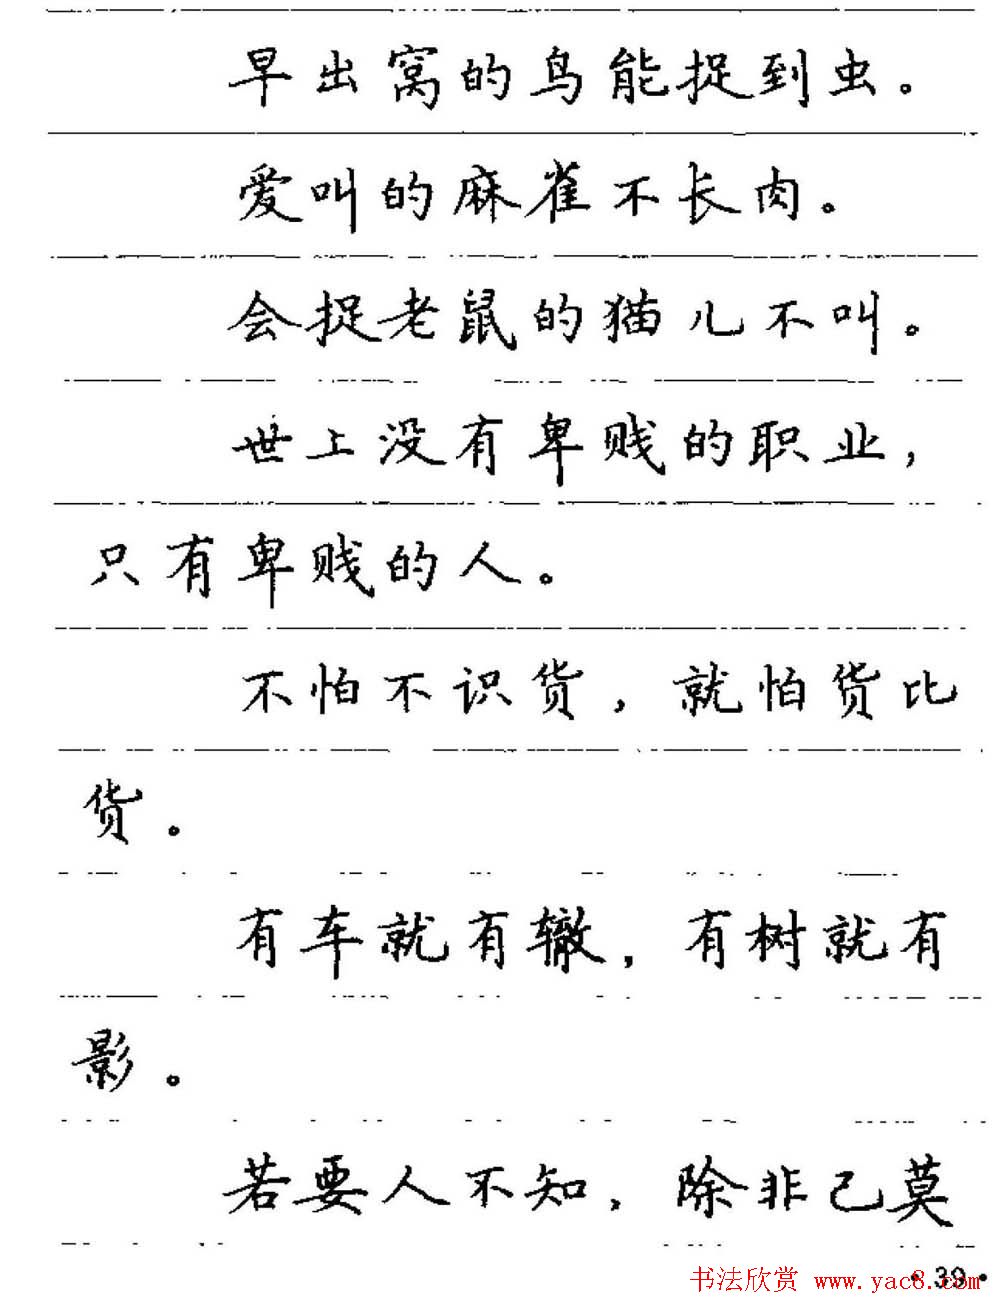 早出窝的鸟能捉到虫。
爱叫的麻雀不长肉。
会捉老鼠的猫儿不叫。
世上没有卑贱的职业，
只有卑贱的人。
不怕不识货，就怕货比
货。
有车就有辙，有树就有
影。
若要人不知，除非己莫
·39·
书法欣赏 www.yac8.com